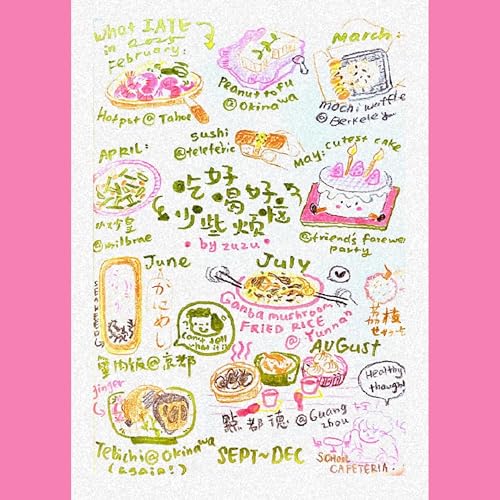 What I ATE
in 2025
February:
Hotpot @ Tahoe
Peanut tofu
@ Okinawa
March:
mochi waffle
@ Berkeley
sushi
@ teleferic
APRIL:
@ milbrae
May: cutest cake
@ friend's farewell
party
吃好喝好
少些烦恼
• by zuzu •
June
SEAWEED
かにめし
蟹肉飯@京都
can't tell
what it is
July
Ganba mushroom
FRIED RICE
@ Yunnan
AUGUST
點都德 @ Guang
zhou
ginger
Tebichi @ Okinawa
(again!)
SEPT~DEC
Healthy
thought
SCHOOL
CAFETERIA: